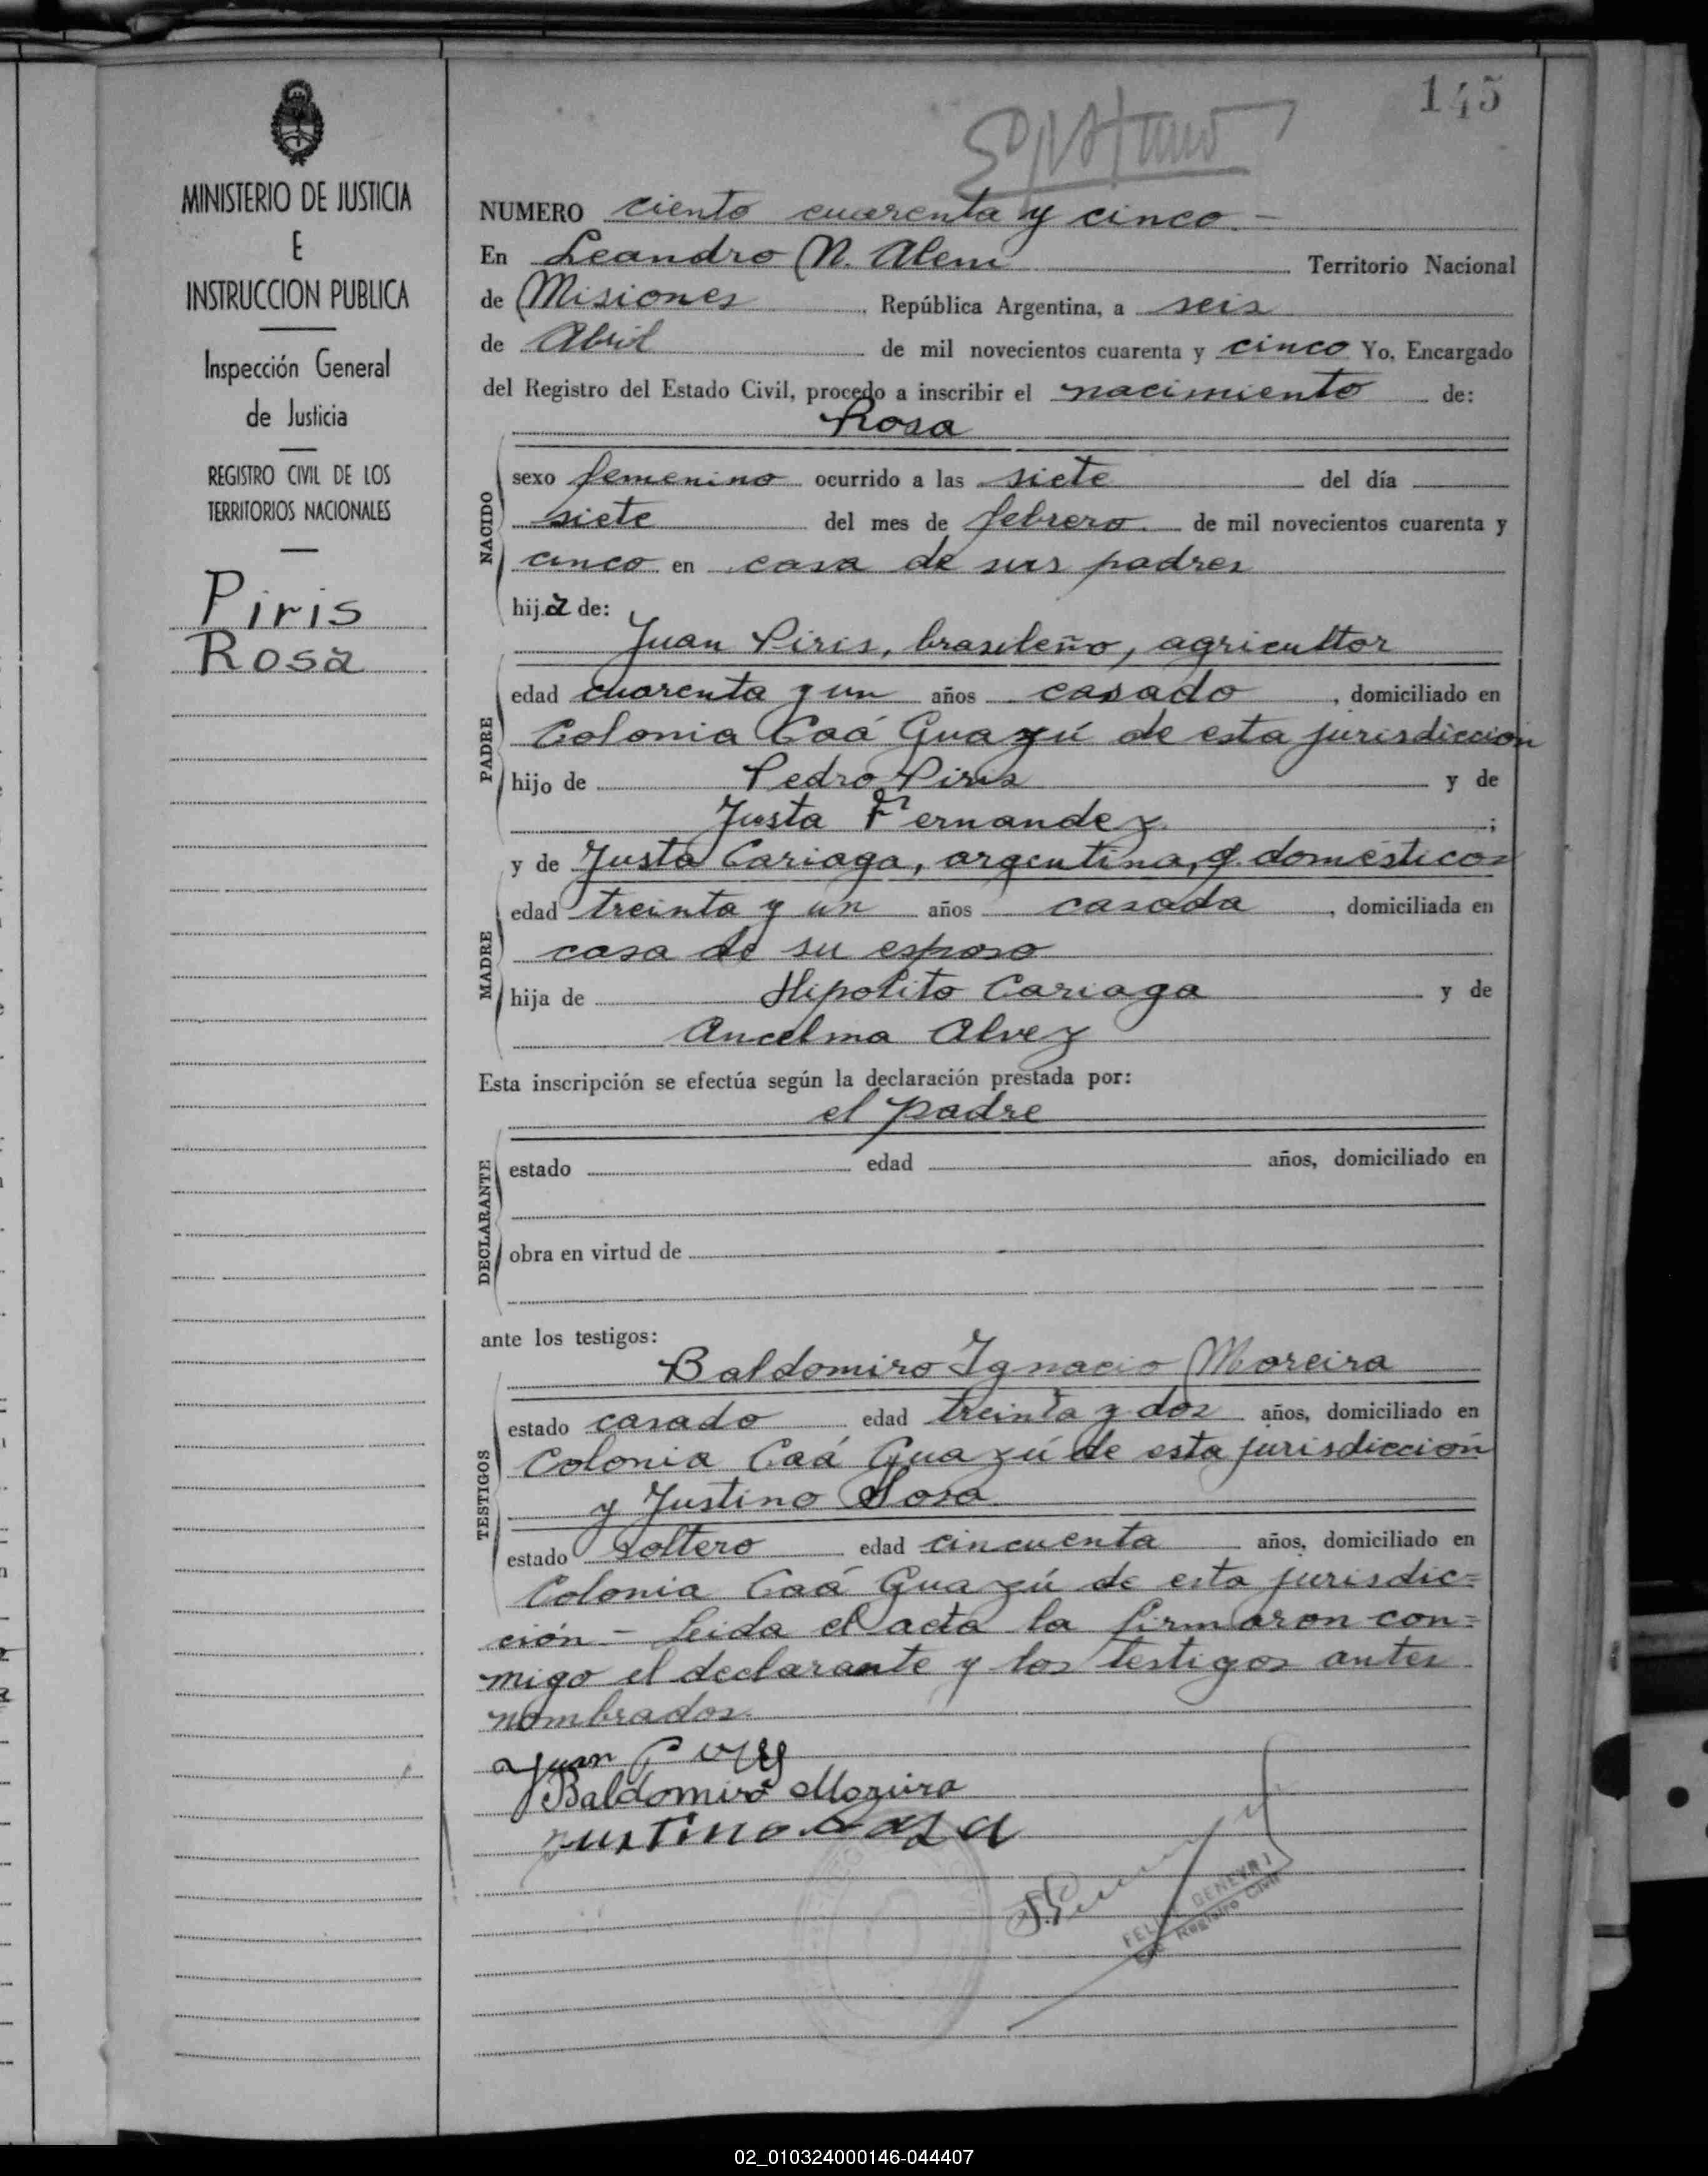 145
MINISTERIO DE JUSTICIA
E
INSTRUCCION PUBLICA
Inspección General
de Justicia
REGISTRO CIVIL DE LOS
TERRITORIOS NACIONALES
Piris
Rosa
NUMERO ciento cuarenta y cinco.-
En Leandro N. Alem Territorio Nacional
de Misiones, República Argentina, a seis
de Abril de mil novecientos cuarenta y cinco Yo, Encargado
del Registro del Estado Civil, procedo a inscribir el nacimiento de:
Rosa
NACIDO
sexo femenino ocurrido a las siete del día
siete del mes de febrero de mil novecientos cuarenta y
cinco en casa de sus padres
hija de:
Juan Piris, brasileño, agricultor
PADRE
edad cuarenta y un años casado, domiciliado en
Colonia Caá Guazú de esta jurisdicción
hijo de Pedro Piris y de
Justa Fernandez;
y de Justa Cariaga, argentina, q. domésticos
MADRE
edad treinta y un años casada, domiciliada en
casa de su esposo
hija de Hipolito Cariaga y de
Ancelma Alvez
Esta inscripción se efectúa según la declaración prestada por:
el padre
DECLARANTE
estado edad años, domiciliado en
obra en virtud de
ante los testigos:
Baldomiro Ignacio Moreira
TESTIGOS
estado casado edad treinta y dos años, domiciliado en
Colonia Caá Guazú de esta jurisdicción
y Justino Sosa
estado soltero edad cincuenta años, domiciliado en
Colonia Caá Guazú de esta jurisdic=
ción - Leida el acta la firmaron con=
migo el declarante y los testigos antes
nombrados.
Juan
Baldomiro Moreira
Justino Sosa
FELIX GENEYRI
Enc. Registro Civil
02_010324000146-044407